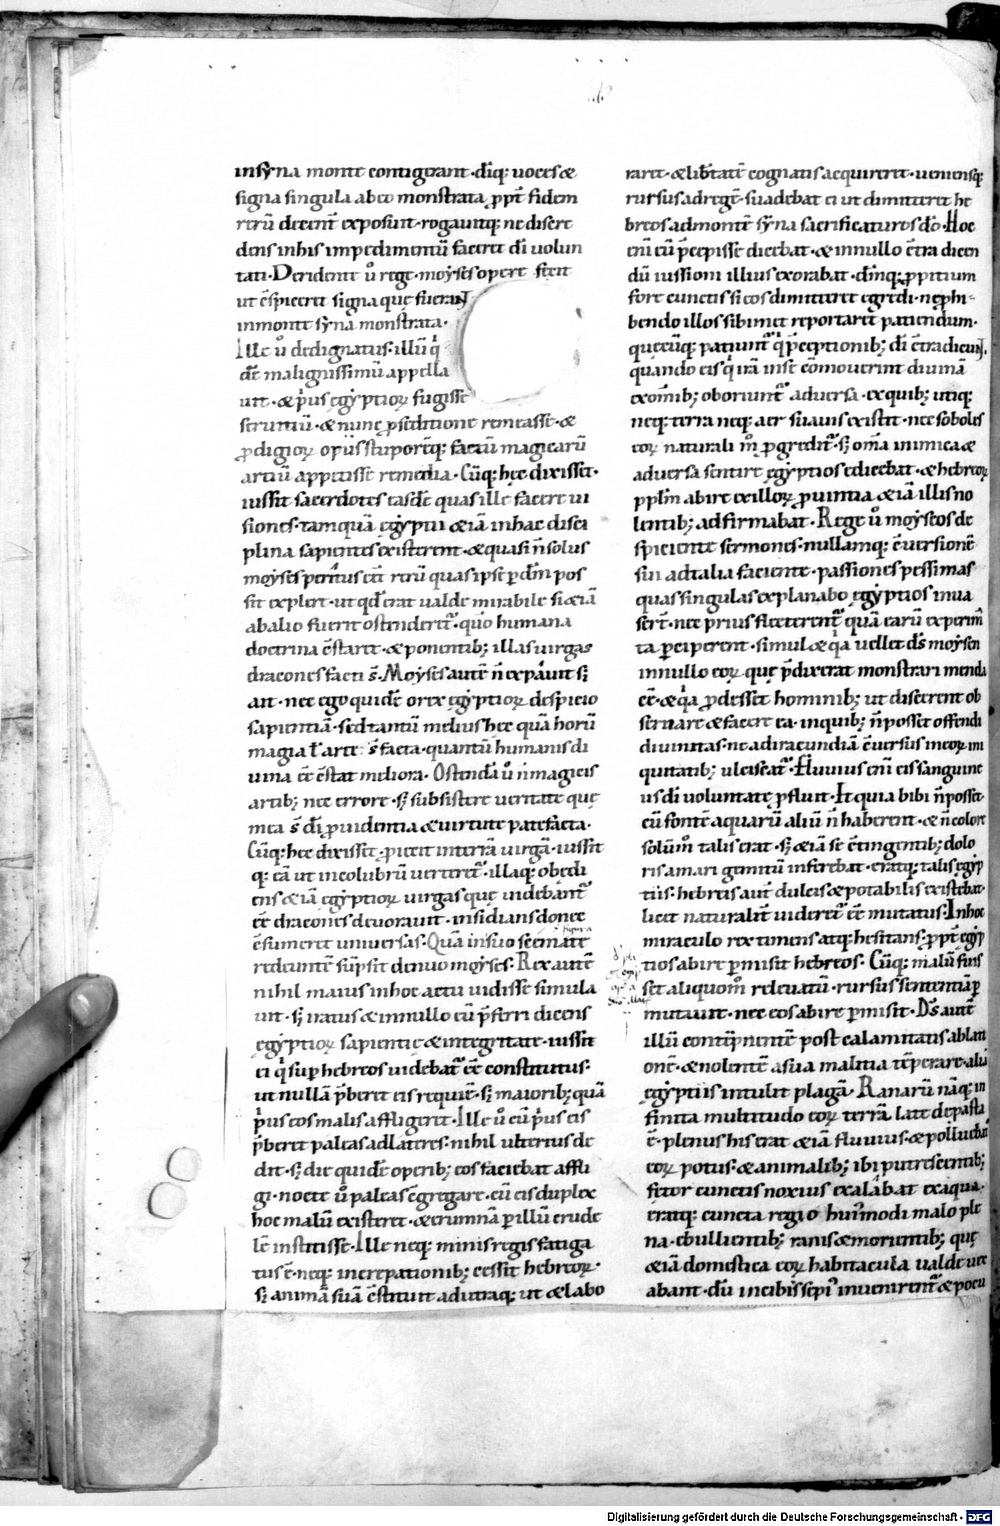 insyna monte contigerant · dīq; uoces &
signa singula ab eo monstrata ꝓpt̄ fidem
rerū dicent̄ exposuit · rogauitq; ne disere
dens in his impedimentū faceret dī uolun
tati · Deridente ū rege · moyses opere fecit
ut c̄spiceret signa quę fuerant
in monte syna monstrata ·
Ille ū dedignatus · illū q̄
dē malignissimū appella
uit · & p̄us egyptioꝝ fugisse
seruitiū · & nunc ꝓ seditione remeasse · &
ꝓdigioꝝ stuporēq; factū magicarū
artiū appetisse remedia · Cūq; hec dixisset ·
iussit sacerdotes easdē quas ille facere ui
siones · tamquā egyptii & iā in hac disci
plina sapientes existerent · & quasi n̄ solus
moyses peritus eēt rerū quas ipse ꝑ dm̄ pos
sit explere · ut qđ erat ualde mirabile si & iā
ab alio fuerit ostenderet̄ · quo humana
doctrina c̄staret · & ponentib; illas uirgas
dracones facti s̄ · Moyses autē n̄ expauit s;
ait · nec ego quidē o rex egyptioꝝ despicio
sapientiā · sed tantū melius hec quā horū
magia t̄ arte s̄ facta · quantū humanis di
uina eē c̄stat meliora · Ostendā ū n̄ magicis
artib; nec errore · s; subsistere ueritate quę
mea s̄ dī ꝓuidentia & uirtute patefacta ·
Cūq; hec dixisset · ꝓiecit in terrā uirgā · iussit
q; eā ut in colubrū uerteret̄ · illaq; obedi
ens & iā egyptioꝝ uirgas quę uidebant̄
eē dracones deuorauit · insidians donec
c̄sumeret uniuersas · Quā in suo scemate
figura
redeuntē sūpsit denuo moyses · Rex autē
nihil maius in hoc actu uidisse simula
uit · s; iratus & in nullo eū p̄ferri dicens
egyptioꝝ sapientię & integritate · iussit
ei q̄ sup̄ hebreos uidebat̄ eē constitutus ·
ut nullā p̄beret eis requiē · s; maiorib; quā
p̄us eos malis affligeret · Ille ū cū p̄us eis
p̄beret paleas ad lateres · nihil ulterius de
dit · s; die quidē operib; eos faciebat affli
gi · nocte ū paleas c̄gregare · cū eis duplex
hoc malū existeret · & erumnā ꝑ illū crude
lē institisse · Ille neq; minis regis fatiga
tus ē · neq; increpationib; cessit hebreoꝝ ·
s; animā suā c̄stituit ad utraq; ut & labo
raret · & lib̄tatē cognatis acquireret · ueniensq;
rursus ad regē · suadebat ei ut dimitteret he
breos ad montē syna sacrificaturos dō · Hoc
eni eū p̄cepisse dicebat · & in nullo c̄tra dicen
dū iussioni illius exorabat · dīnq; ꝓpitium
fore cunctis si eos dimitteret egredi · ne ꝓhi-
bendo illos sibimet reportaret patiendum ·
quecūq; patiunt̄ q̄ p̄ceptionib; dī c̄tradicunt ·
quando eis q̄ irā in se c̄mouerint diuinā
ex om̄ib; oboriunt̄ aduersa · ex quib; utiq;
neq; terra neq; aer suauis existit · nec soboles
eoꝝ naturali m̊ ꝓgredit̄ · s; om̄a inimica &
aduersa sentire egyptios edicebat · & hebreoꝝ
pplm̄ abire ex illoꝝ ꝓuintia & iā illis no
lentib; adfirmabat · Rege ū moyseos de
spiciente sermones · nullamq; c̄uersionē
sui ad talia faciente · passiones pessimas
quas singulas explanabo egyptios inua
serū · nec prius flecterent̄ quā earū experim̄
ta ꝑciperent · simul & q̄a uellet ds̄ moysen
in nullo eoꝝ quę p̄dixerat monstrari menda
cē · & q̄a ꝓdesset hominib; ut discerent ob
seruare & facere ea · in quib; n̄ posset offendi
diuinitas · ne ad iracundiā c̄uersus in eoꝝ ini
quitatib; ulcisceat̄ · Fluuius eni eis sanguine
us dī uoluntate ꝓfluit · Et quia bibi n̄ posset ·
cū fontē aquarū aliū n̄ haberent · & n̄ colore
solūm̊ talis erat · s; & iā se c̄tingentib; dolo
ris amari gemitū inferebat · eratq; talis egyp
tiis · hebreis aut̄ dulcis & potabilis existebat ·
licet naturalit̄ uideret̄ eē mutatus · In hoc
miraculo rex timens atq; hesitans · ꝓpt̄ egyp
tios abire ꝑmisit hebreos · Cūq; malū fuis
set aliquom̊ releuatū · rursus sententiā
mutauit · nec eos abire ꝑmisit · Ds̄ autē
illū contēpnentē post calamitatis ablati
onē · & nolentē a sua malitia tēperare · aliā
egyptiis intulit plagā · Ranarū nāq; in
finita multitudo eoꝝ terrā late depasta
ē · plenus his erat & iā fluuius · & polluebat
eoꝝ potus · & animalib; ibi putrescentib;
fetor cunctis noxius exalabat ex aqua ·
eratq; cuncta regio hui͛modi malo ple
na · ebullientib; ranis & morientib; quę
& iā domestica eoꝝ habitacula ualde uex
abant · dū in cibis sepi͛ inuenirent̄ & pocu
Digitalisierung gefördert durch die Deutsche Forschungsgemeinschaft - DFG